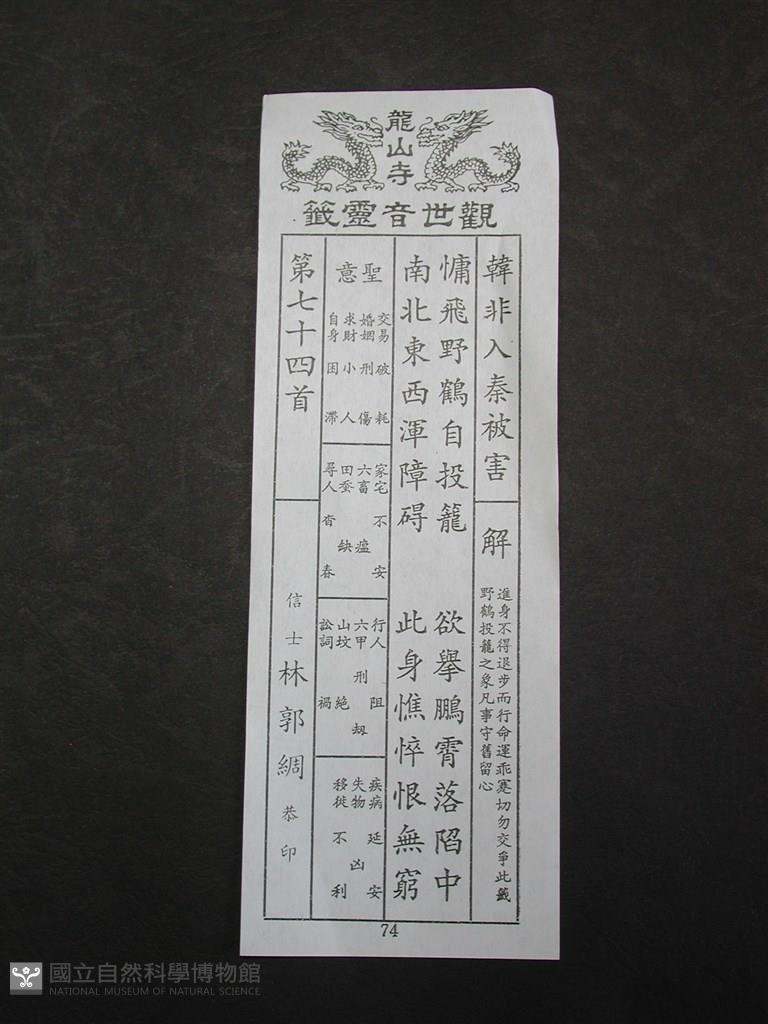 龍山寺
觀世音靈籤
韓非入秦被害
解
進身不得退步而行命運乖蹇切勿交爭此籤
野鶴投籠之象凡事守舊留心
慵飛野鶴自投籠
欲舉鵬霄落陷中
南北東西渾障碍
此身憔悴恨無窮
聖意
交易破耗
婚姻刑傷
求財小人
自身困滯
家宅不安
六畜瘟
田蚕缺
尋人杳春
行人阻
六甲刑刼
山坟絕
訟詞禍
疾病延安
失物凶
移徙不利
第七十四首
信士林郭綢恭印
74
國立自然科學博物館
NATIONAL MUSEUM OF NATURAL SCIENCE